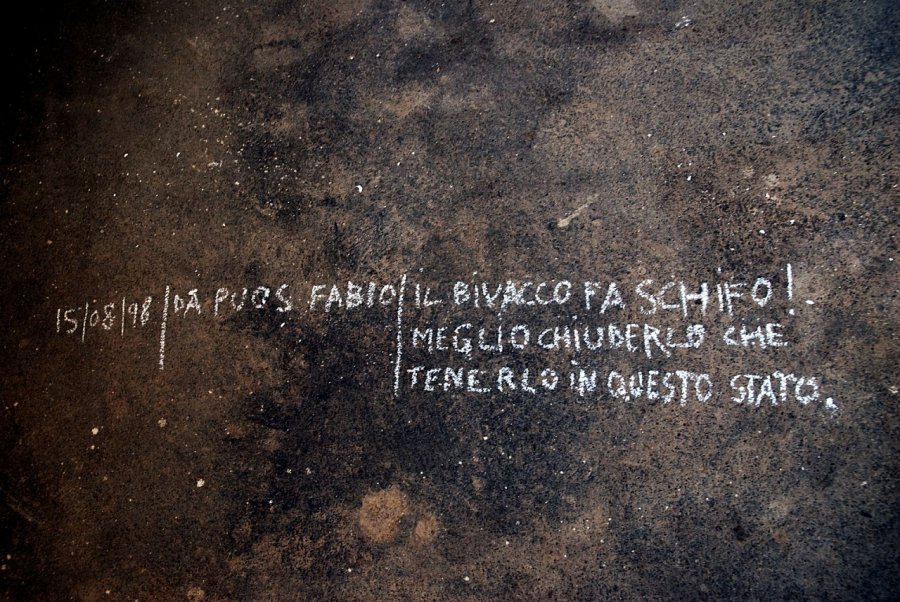 15/08/98 | DA PUOS FABIO | IL BIVACCO FA SCHIFO!
MEGLIO CHIUDERLO CHE
TENERLO IN QUESTO STATO.